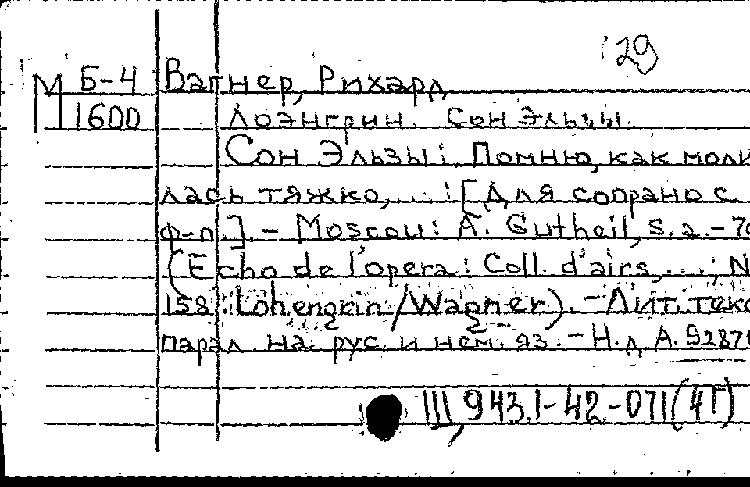 29
М Б-4 Вагнер, Рихард
1600 Лоэнгрин. Сон Эльзы.
Сон Эльзы: Помню, как моли
лась тяжко,...: [Для сопрано с
ф-п.]. - Moscou: A. Gutheil, s.a. - 7с
(Echo de l'opera: Coll. d'airs,...; N
158: Lohengrin/Wagner). - Лит. текс
парал. на рус. и нем. яз. - Н.д. А. 9287
III, 943.1-42-071(4Г)